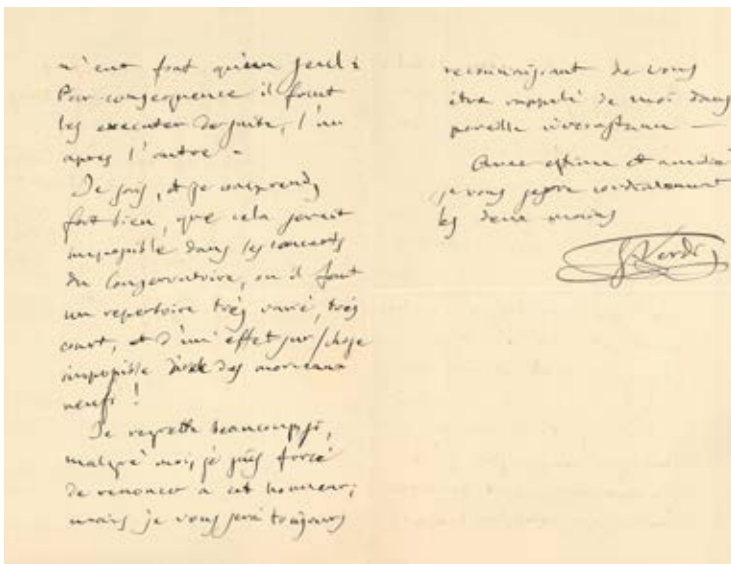 n'ent font qu'un seul:
Par consequence il faut
les executer de suite, l'un
apres l'autre –
Je sais, et je comprends
fort bien, que cela serait
impossible dans les concerts
du Conservatoire, ou il faut
un repertoire très varié, très
court, et d'un' effet sur/chose
impossible des morceaux
neufs!
Je regrette beaucoup si,
malgré moi, je suis forcé
de renoncer a cet honneur;
mais je vous serai toujours
reconnaissant de vous
être rappelé de moi dans
pareille circostance –
Avec estime et amitié
je vous serre cordialement
les deux mains
G. Verdi